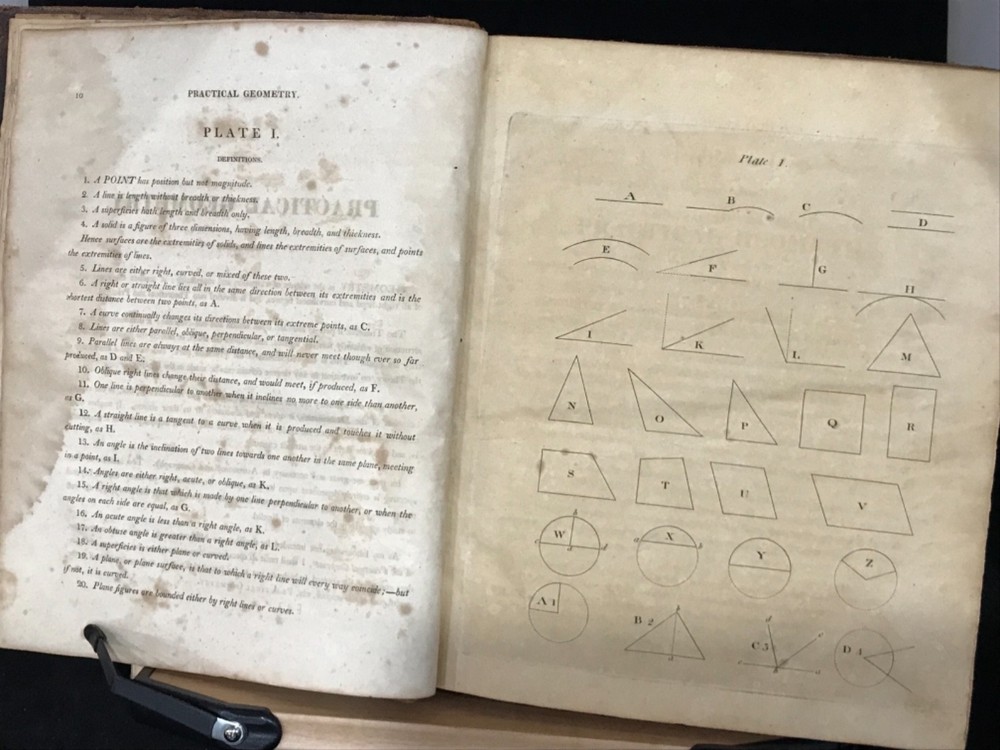 10
PRACTICAL GEOMETRY.
PLATE I.
DEFINITIONS.
1. A POINT has position but not magnitude.
2. A line is length without breadth or thickness.
3. A superficies hath length and breadth only.
4. A solid is a figure of three dimensions, having length, breadth, and thickness.
Hence surfaces are the extremities of solids, and lines the extremities of surfaces, and points
the extremities of lines.
5. Lines are either right, curved, or mixed of these two.
6. A right or straight line lies all in the same direction between its extremities and is the
shortest distance between two points, as A.
7. A curve continually changes its directions between its extreme points, as C.
8. Lines are either parallel, oblique, perpendicular, or tangential.
9. Parallel lines are always at the same distance, and will never meet though ever so far
produced, as D and E.
10. Oblique right lines change their distance, and would meet, if produced, as F.
11. One line is perpendicular to another when it inclines no more to one side than another,
as G.
12. A straight line is a tangent to a curve when it is produced and touches it without
cutting, as H.
13. An angle is the inclination of two lines towards one another in the same plane, meeting
in a point, as I.
14. Angles are either right, acute, or oblique, as K.
15. A right angle is that which is made by one line perpendicular to another, or when the
angles on each side are equal, as G.
16. An acute angle is less than a right angle, as K.
17. An obtuse angle is greater than a right angle, as L.
18. A superficies is either plane or curved.
19. A plane, or plane surface, is that to which a right line will every way coincide;—but
if not, it is curved.
20. Plane figures are bounded either by right lines or curves.
Plate 1.
A B C D
E F G H
I K L M
N O P Q R
S T U V
W X Y Z
a b
A 1 B 2 C 3 D 4